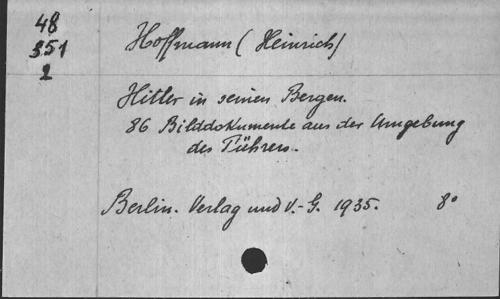 48
351
2
Hoffmann (Heinrich)
Hitler in seinen Bergen.
86 Bilddokumente aus der Umgebung
des Führers.
Berlin. Verlag und V.-G. 1935. 8°